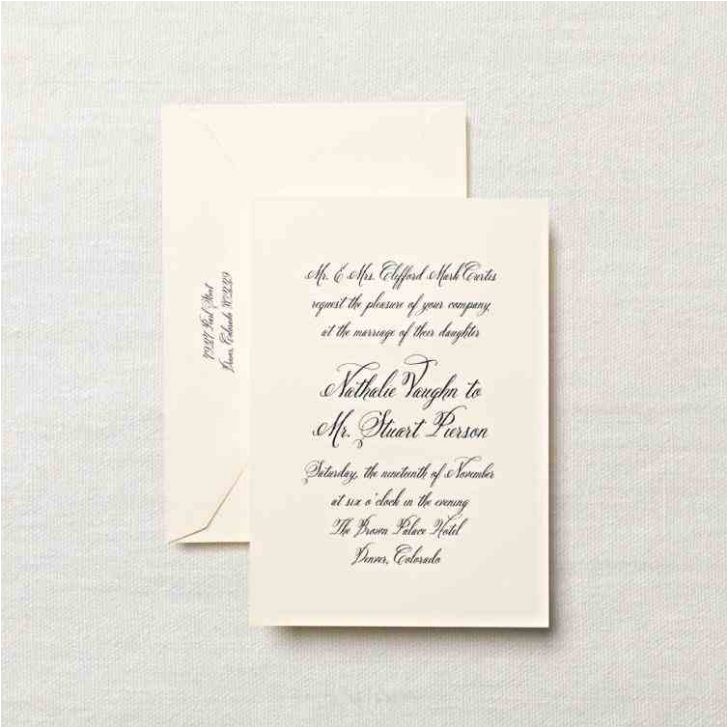 Mr. & Mrs. Clifford Mark Curtis
request the pleasure of your company
at the marriage of their daughter
Nathalie Vaughn to
Mr. Stuart Pierson
Saturday, the nineteenth of November
at six o'clock in the evening
The Brown Palace Hotel
Denver, Colorado
Street
Colorado